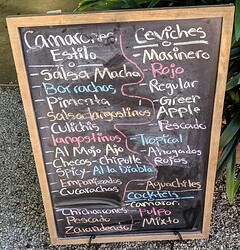 Camarones
Estilo
Salsa Macha
Borrachos
Pimenta
Salsa Langostinos
Culichis
Langostinos
Al Mojo Ajo
Checos-Chipotle
Spicy - Al la Diabla
Empanizados
Cucarachas
Chicharones
Pescado
Zarandeado
Ceviches
Marinero
Rojo
Regular
Green
Apple
Pescado
Tropical
Ahogados
Rojos
Aguachiles
Cocktels
Camaron
Pulpo
Mixto